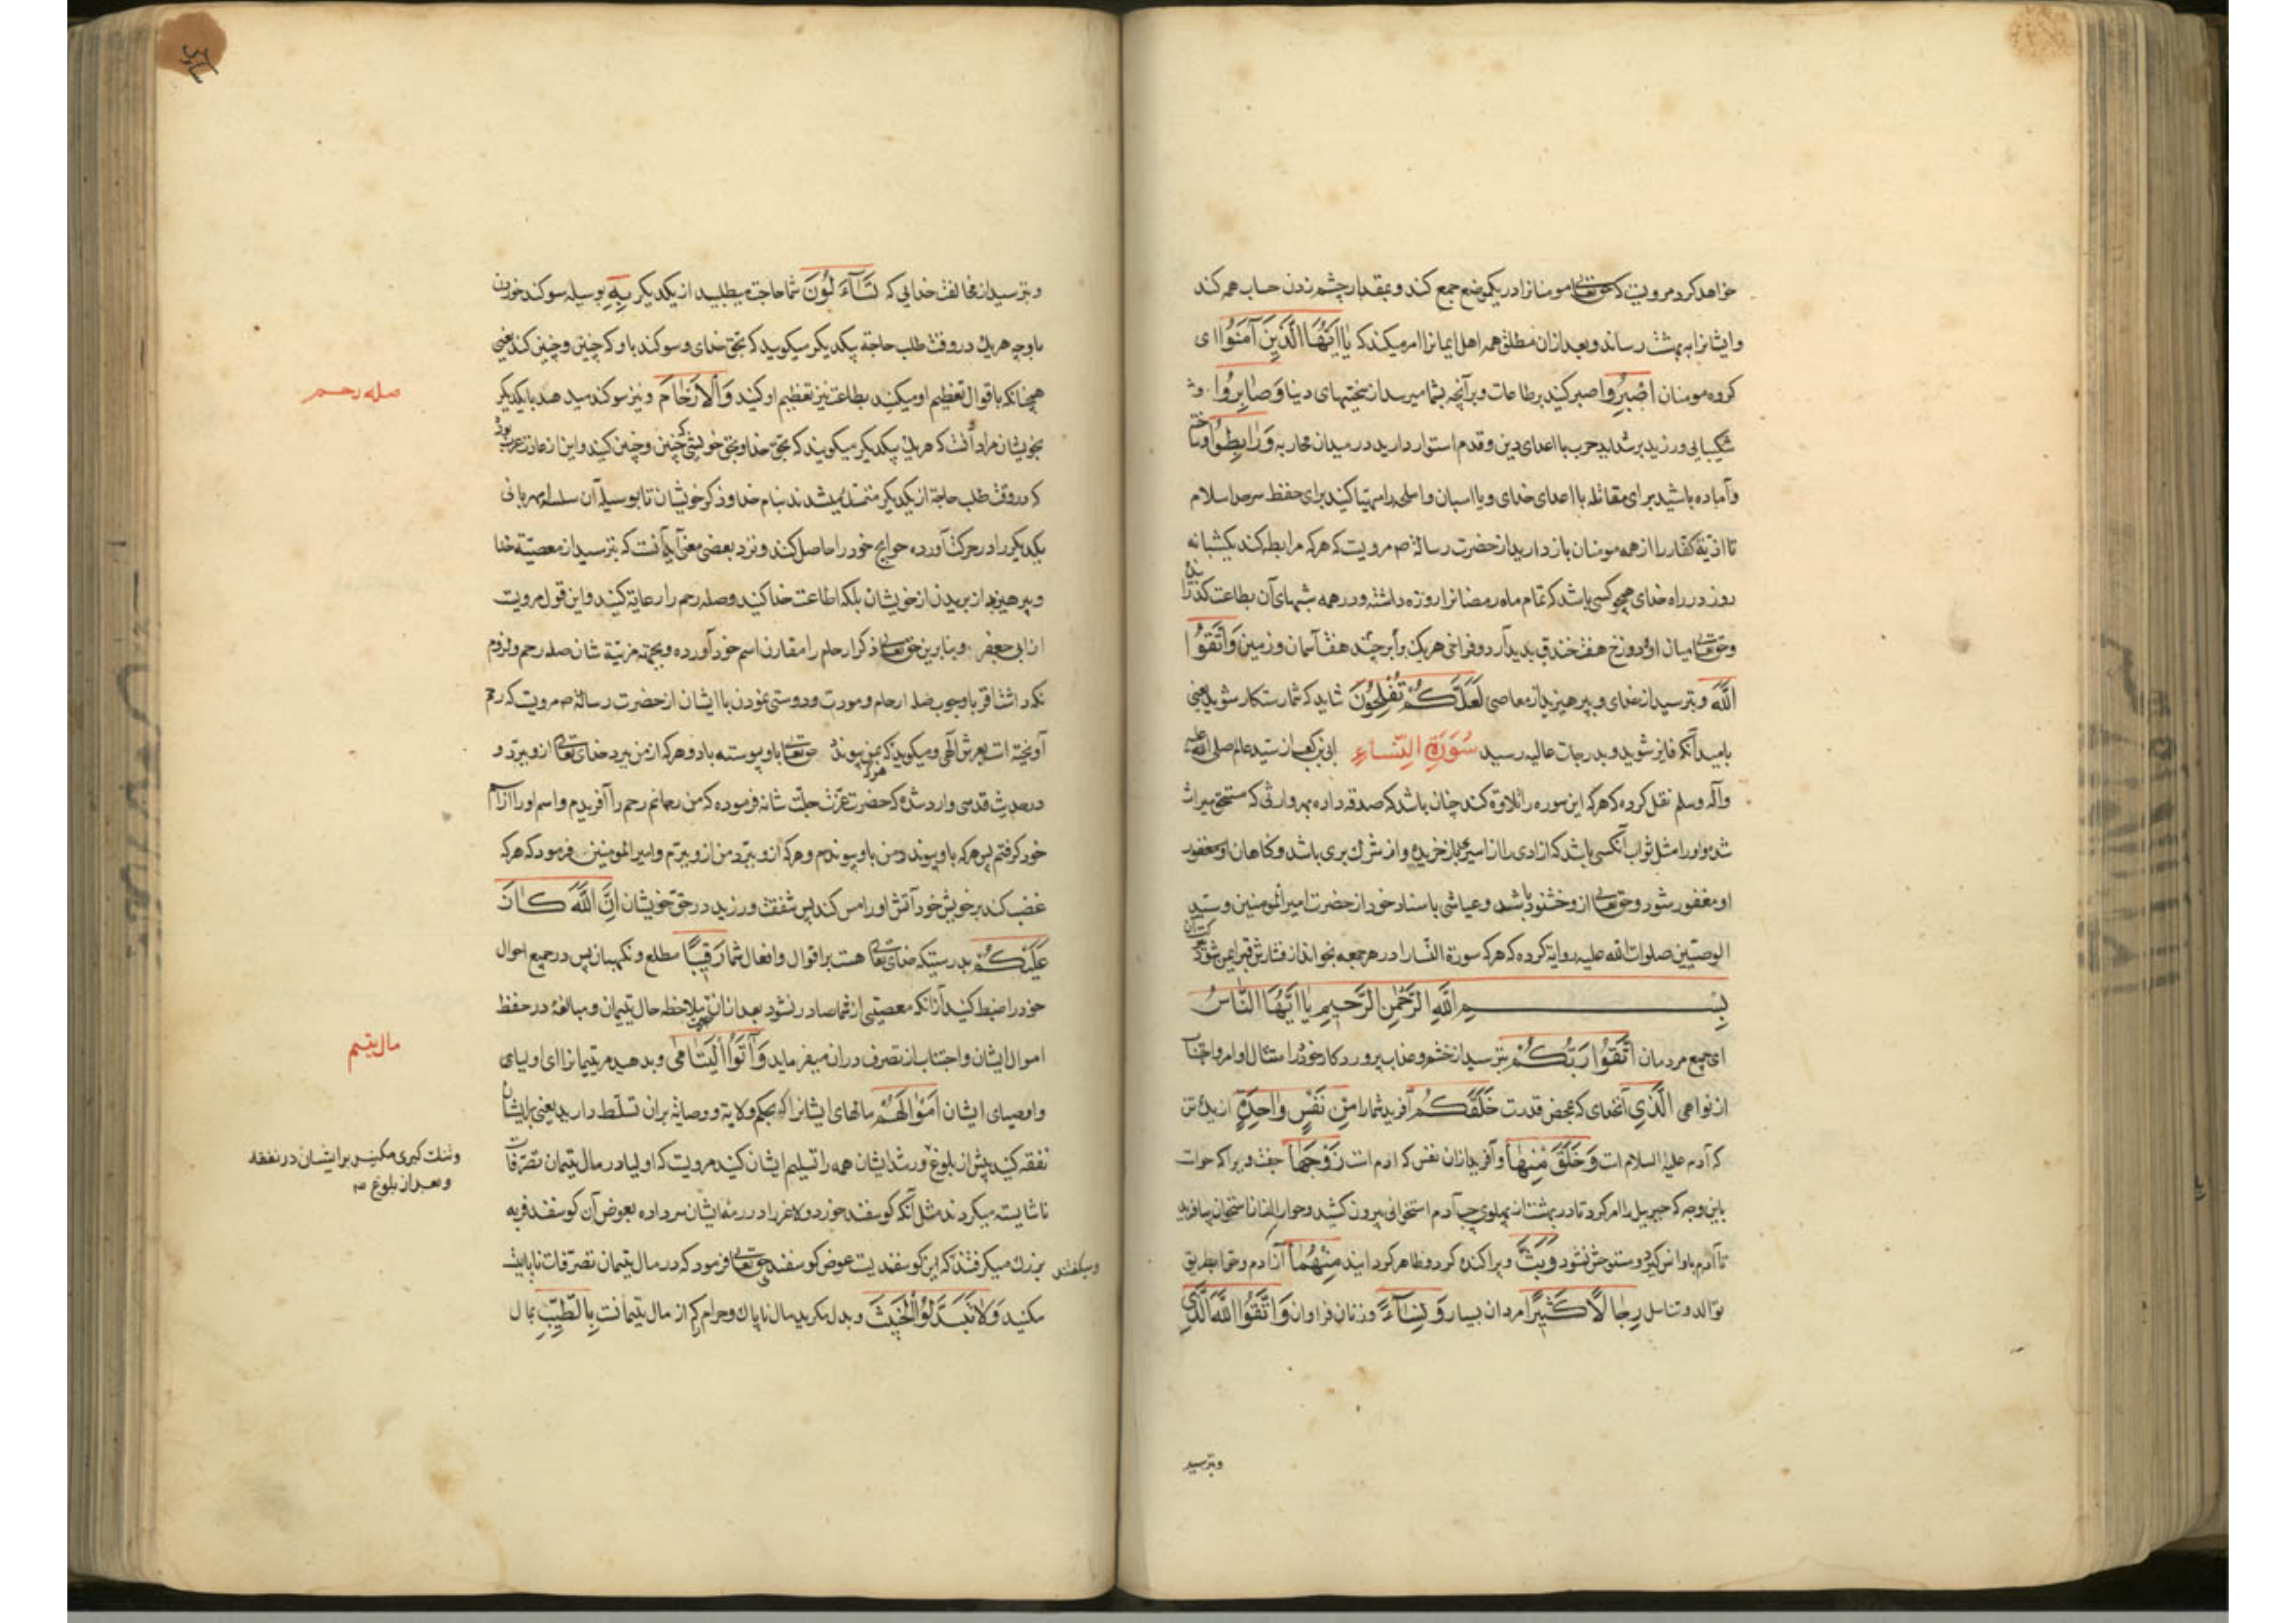 خواهد کرد مرویست که حق تعالی مومنانرا در یکموضع جمع کند و بمقدار چشم زدن حساب همه کند
و ایشانرا به بهشت رساند و بعد ازان مطلق همه اهل ایمانرا امر میکند که یَا اَیُّهَا الَّذِینَ آمَنُوا ای
کروه مومنان اصْبِرُوا صبر کنید بر طاعات و بر آنچه بشما میرسد از سختیهای دنیا وَصَابِرُوا و
شکیبایی ورزید بر شداید حرب با اعدای دین و قدم استوار دارید در میدان محاربه وَرَابِطُوا
و آماده باشید برای مقاتله با اعدای خدای و یا اسبان و اسلحه را مهیا کنید برای حفظ سرحد اسلام
تا اذیة کفار را از همه مومنان باز دارید از حضرت رسالة ص مرویست که هر که مرابطه کند یکشبانه
روز در راه خدای همچو کسی باشد که تمام ماه رمضانرا روزه داشته و در همه شبهای آن بطاعت
و حق تعالی میان او و دوزخ هفت خندق پدید آرد و فراخی هر یک برابر هفت آسمان و زمین وَاتَّقُوا
اللهَ و بترسید از خدای و بپرهیزید از معاصی لَعَلَّکُمْ تُفْلِحُونَ شاید که شما رستکار شوید یعنی
بامید آنکه فایز شوید و بدرجات عالیه رسید سُورَةِ النِّسَاءِ ابی بن کعب از سید عالم صلی الله علیه
وآله وسلم نقل کرده که هر که این سوره را تلاوة کند چنان باشد که صدقه داده بهر وارثی که مستحق میراث
شده و او را مثل ثواب آنکسی باشد که ازادی را از اسیری باز خریده و از شرک بری باشد و کناهان او مغفور
او مغفور شود و حق تعالی ازو خشنود باشد و عیاشی باسناد خود از حضرت امیر المومنین و سید
الوصیین صلوات الله علیه روایة کرده که هر که سورة النساء را در هر جمعه بخواند از فشارش قبر ایمن شود
بِسْمِ اللهِ الرَّحْمٰنِ الرَّحِیمِ یَا اَیُّهَا النَّاسُ
ای جمیع مردمان اتَّقُوا رَبَّکُمْ بترسید از خشم و عذاب پروردکار خود در امتثال اوامر و اجتناب
از نواهی الَّذِی آنخدای که بمحض قدرت خَلَقَکُمْ آفرید شما را مِنْ نَفْسٍ وَاحِدَةٍ از یک تن
که آدم علیه السلام است وَخَلَقَ مِنْهَا و آفرید ازان نفس که ادم است زَوْجَهَا جفت ویرا که حواست
باین وجه که جبرییل را امر کرد تا در بهشت از پهلوی چپ آدم استخوانی بیرون کشید و حوا را ازان استخوان بیافرید
تا آدم باو انس کیرد و مستوحش نشود وَبَثَّ و پراکنده کرد و ظاهر کردانید مِنْهُمَا از آدم و حوا بطریق
توالد و تناسل رِجَالًا کَثِیرًا مردان بسیار وَنِسَاءً و زنان فراوان وَاتَّقُوا اللهَ الَّذِی
وبترسید
و بترسید از مخالفت خدایی که تَسَآءَلُونَ شما حاجت میطلبید از یکدیکر بِهِ بوسیله سوکند خوردن
باو چه هر یک در وقت طلب حاجة بیکدیکر میکویید که بحق خدای و سوکند باو که چنین و چنین کن یعنی
همچنانکه باقوال تعظیم او میکنید بطاعت نیز تعظیم او کنید وَالْاَرْحَامَ و نیز سوکند میدهید بایکدیکر
صله رحم
بخویشان مراد آنست که هر یک بیکدیکر میکویند که بحق خدا و بحق خویشی که چنین و چنین کنید و این از عادت عرب بود
که در وقت طلب حاجة از یکدیکر متمسک میشدند بنام خدا و ذکر خویشان تا بوسیله آن سلسله مهربانی
یکدیکر را در حرکت آورده حوایج خود را حاصل کنند و نزد بعضی معنی آیه آنست که بترسید از معصیة خدا
و بپرهیزید از بریدن از خویشان بلکه اطاعت خدا کنید و صله رحم را رعایة کنید و این قول مرویست
از ابی جعفر و بنابرین حق تعالی ذکر ارحام را مقارن اسم خود آورده و بجهة مزیة شان صله رحم و لزوم
وجوب صله ارحام و مودت و دوستی نمودن با ایشان از حضرت رسالة ص مرویست که رحم
آویخته است بعرش الهی و میکوید که هر که بمن پیوندد حق تعالی باو پیوسته باد و هر که از من ببرد خدای تعالی ازو ببرد و
در حدیث قدسی وارد شده که حضرت عزت جلت شانه فرموده که من رحمانم رحم را آفریدم و اسم او را از نام
خود کرفتم پس هر که باو پیوندد من باو پیوندم و هر که ازو ببرد من ازو ببرم و امیر المومنین فرمود که هر که
غضب کند بر خویش خود آتش او را مس کند پس شفقت ورزید در حق خویشان اِنَّ اللهَ کَانَ
عَلَیْکُمْ بدرستیکه خدای تعالی هست بر اقوال و افعال شما رَقِیبًا مطلع و نکهبان پس در جمیع احوال
خود را ضبط کنید از آنکه معصیتی از شما صادر نشود بعد ازان بملاحظه حال یتیمان و مبالغه در حفظ
اموال ایشان و اجتناب از تصرف دران میفرماید وَآتُوا الْیَتَامٰی و بدهید مر یتیمانرا ای اولیای
مال یتیم
و اوصیای ایشان اَمْوَالَهُمْ مالهای ایشانرا که بحکم ولایة و وصایة بران تسلط دارید یعنی بر ایشان
نفقه کنید پیش از بلوغ و رشد ایشان همه را تسلیم ایشان کنید مرویست که اولیا در مال یتیمان تصرفات
و تنک کیری مکنید بر ایشان در نفقه
و بعد از بلوغ صح
ناشایسته میکردند مثل آنکه کوسفند خورد و لاغر را در رمه ایشان سر داده بعوض آن کوسفند فربه
بزرک میکرفتند که این کوسفندیست عوض کوسفند حق تعالی فرمود که در مال یتیمان تصرفات نابایست
ومیکفتند
مکنید وَلَا تَتَبَدَّلُوا الْخَبِیثَ و بدل مکنید مال ناپاک و حرام که از مال یتیمانست بِالطَّیِّبِ بمال